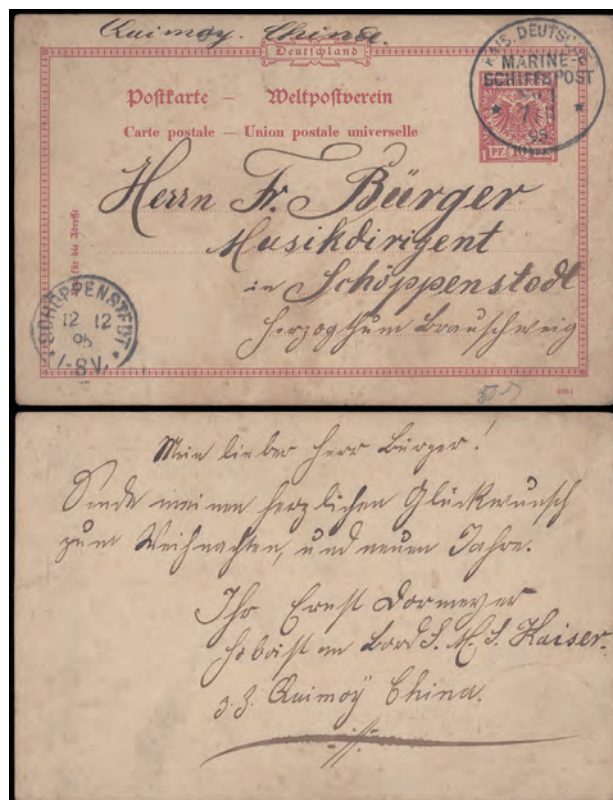 Quimoy. Chinae.
Deutschland
KAIS. DEUTSCHE
MARINE-
SCHIFFSPOST
No 1
7 11
95
Postkarte — Weltpostverein
Carte postale — Union postale universelle
10 PF. 10
für die Adresse
Herrn Fr. Bürger
Musikdirigent
in Schöppenstedt
Herzogthum Brauschweig
SCHÖPPENSTEDT
12 12
95
7-8V.
Mein lieber Herr Bürger!
Sende meinen herzlichen Glückwunsch
zum Weihnachten, und neuen Jahre.
Ihr Ernst Dormeyer
Hoboist an Bord S. M. S. Kaiser.
z. Z. Quimoÿ China.